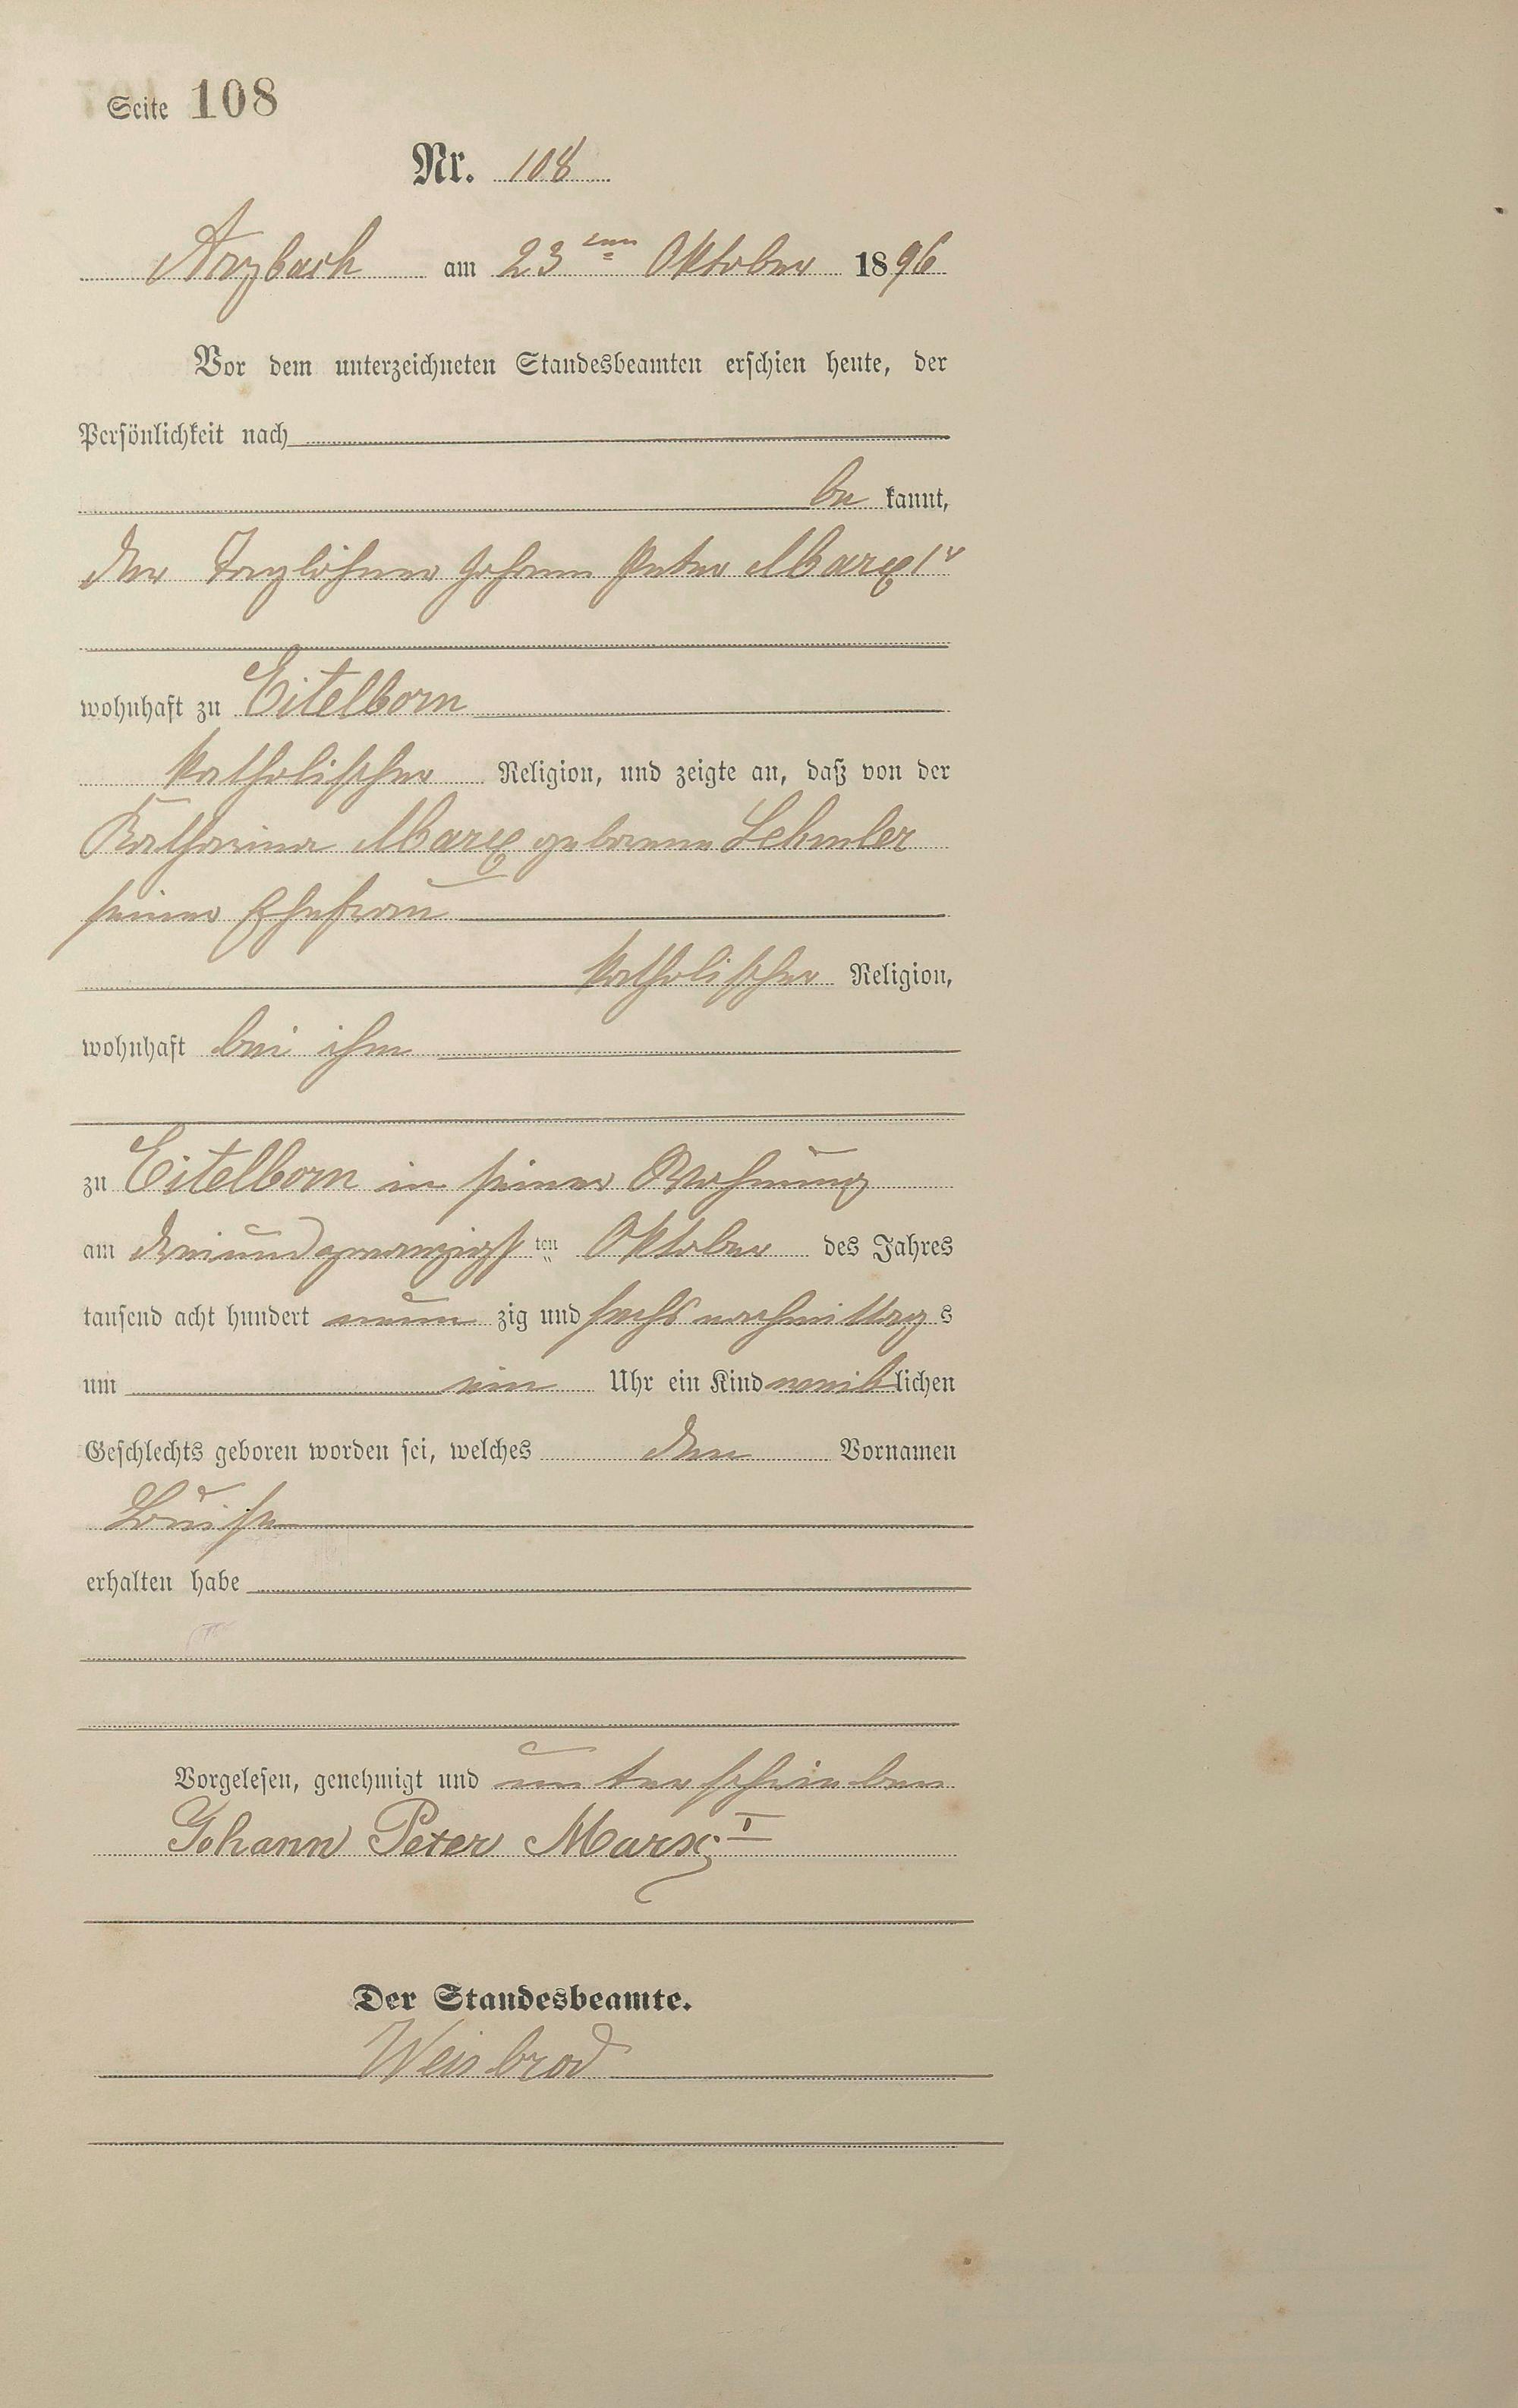 Seite 108
Nr. 108
Arzbach am 23ten Oktober 1896
Vor dem unterzeichneten Standesbeamten erschien heute, der
Persönlichkeit nach
be kannt,
der Taglöhner Johann Peter Marx Ir
wohnhaft zu Eitelborn
katholischer Religion, und zeigte an, daß von der
Katharina Marx geborene Lehmler
seiner Ehefrau
katholischer Religion,
wohnhaft bei ihm
zu Eitelborn in seiner Wohnung
am dreiundzwanzigsten Oktober des Jahres
tausend acht hundert neun zig und sechs nachmittag s
um ein Uhr ein Kind weiblichen
Geschlechts geboren worden sei, welches den Vornamen
Luise
erhalten habe
Vorgelesen, genehmigt und unterschrieben
Johann Peter Marx I
Der Standesbeamte.
Weisbrod